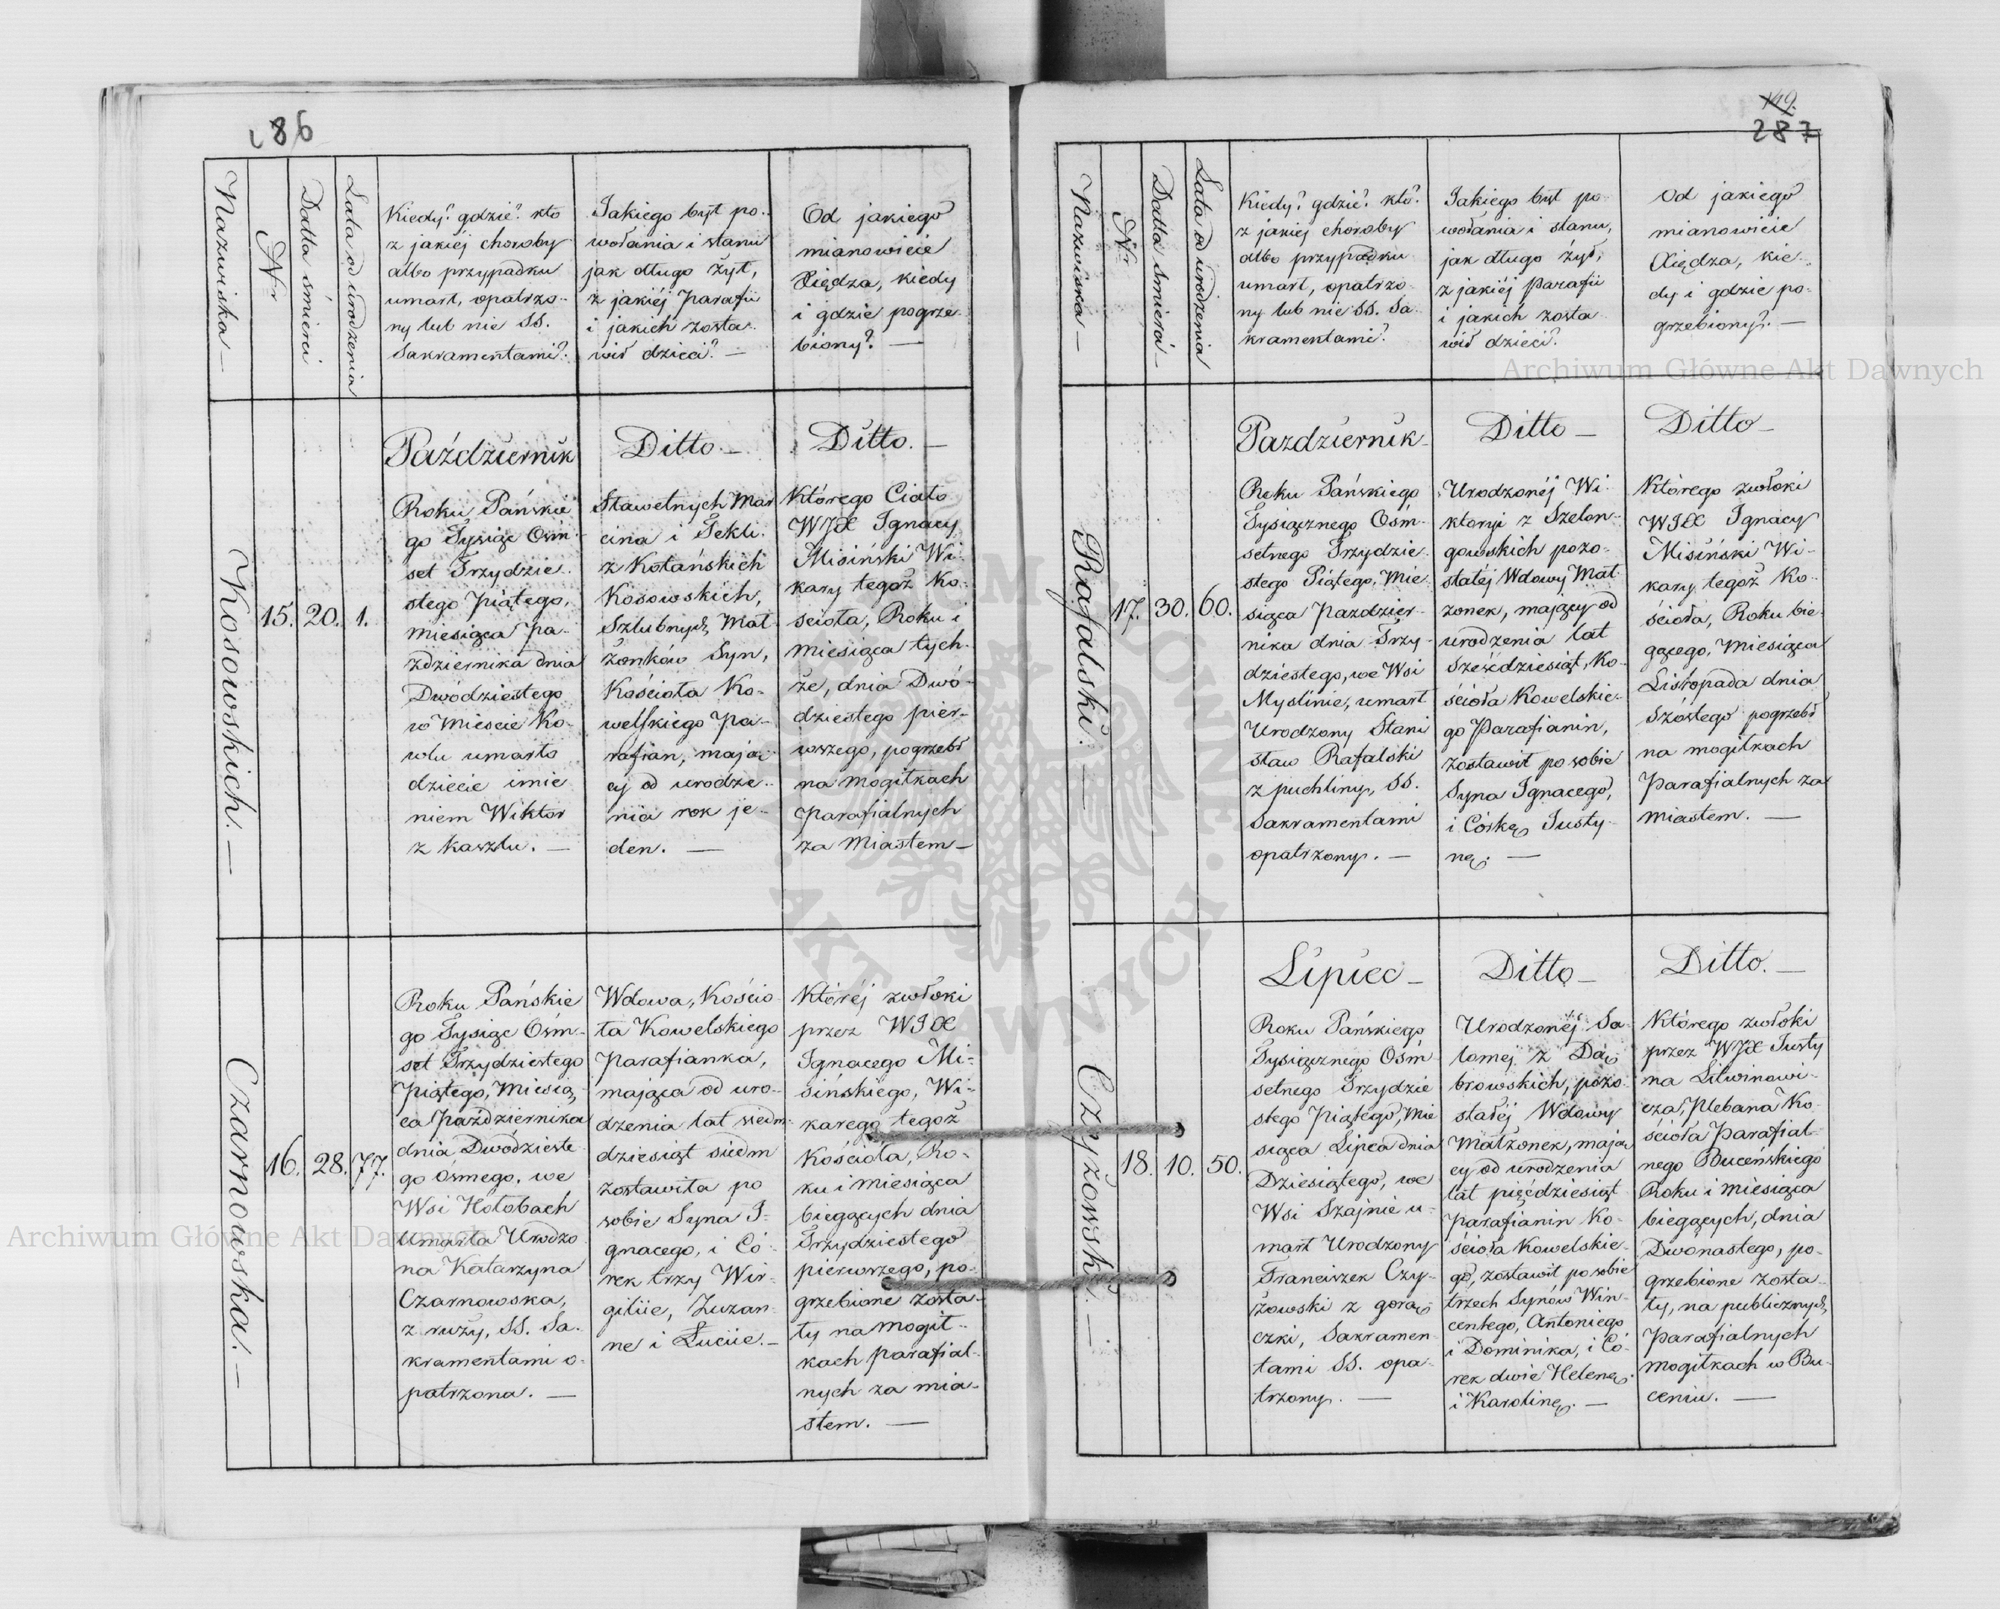 286
Nazwiska —
Nr
Datta śmierci
Lata od urodzenia
Kiedy? gdzie? kto
z jakiéj choroby
albo przypadku
umarł, opatrzo-
ny lub nie SS.
Sakramentami?
Jakiego był po-
wołania i stanu
jak długo żył,
z jakiéj Parafii
i jakich zosta-
wił dzieci? —
Od jakiego
mianowicie
Xiędza, kiedy
i gdzie pogrze-
biony? —
Kosowskich. —
15.
20.
1.
Październik
Roku Pańskie
go Tysiąc Ośm-
set Trzydzie-
stego Piątego,
miesiąca Pa-
ździernika dnia
Dwódziestego
w Mieście Ko-
wlu umarło
dziecie imie
niem Wiktor
z kaszlu. —
Ditto. —
Sławetnych Mar
cina i Tekli
z Kotańskich
Kosowskich,
Szlubnych Mał
żonków Syn,
Kościoła Ko-
welskiego Pa-
rafian, mają-
cy od urodze-
nia rok je-
den. —
Ditto. —
Którego Ciało
WJX Ignacy
Misiński Wi-
kary tegoż Ko-
ścioła, Roku i
Miesiąca tych-
że, dnia Dwó-
dziestego pier-
wszego, pogrzebł
na Mogiłkach
Parafialnych
za Miastem —
Czarnowska. —
16.
28.
77.
Roku Pańskie
go Tysiąc Ośm-
set Trzydziestego
Piątego, Miesią
ca Października
dnia Dwódzieste
go Ósmego, we
Wsi Hołobach
Umarła Urodzo
na Katarzyna
Czarnowska,
z ruży, SS. Sa-
kramentami o-
patrzona. —
Wdowa, Kościo
ła Kowelskiego
Parafianka,
mająca od uro-
dzenia lat siedm
dziesiąt siedm
zostawiła po
sobie Syna I-
gnacego, i Có-
rek trzy Wir-
giliie, Zuzan-
ne i Łuciie. —
Któréj zwłoki
przez WJX
Ignacego Mi-
sińskiego, Wi-
karego tegoż
Kościoła, Ro-
ku i miesiąca
biegących dnia
Trzydziestego
pierwszego, po-
grzebione zosta-
ły na Mogił-
kach Parafial-
nych za mia-
stem. —
149.
287
Nazwiska —
Nr
Datta śmierci —
Lata od urodzenia
Kiedy? gdzie? kto?
z jakiej choroby
albo przypadku
umarł, opatrzo-
ny lub nie SS. Sa-
kramenti?
Jakiego był po-
wołania i stanu,
jak długo żył,
z jakiéj Parafii
i jakich zosta-
wił dzieci?
Od jakiego
mianowicie
Xiędza, kie-
dy i gdzie po-
grzebiony? —
Rafalski. —
17.
30.
60.
Pazdziernik —
Roku Pańskiego
Tysiącznego Ośm-
setnego Trzydzie-
stego Piątego, Mie
siąca Pazdzier-
nika dnia Trzy-
dziestego, we Wsi
Myslinie, umarł
Urodzony Stani
sław Rafalski
z puchliny, SS.
Sakramentami
opatrzony. —
Ditto —
Urodzonéj Wi-
ktoryi z Szelon-
gowskich pozo-
stałéj Wdowy Mał
żonek, mający od
urodzenia lat
Sześćdziesiąt, Ko-
ścioła Kowelskie-
go Parafianin,
zostawił po sobie
Syna Ignacego,
i Córkę Justy-
nę. —
Ditto —
Którego zwłoki
WJX Ignacy
Misiński Wi-
kary tegoż Ko-
ścioła, Roku bie-
gącego, Miesiąca
Listopada dnia
Szóstego pogrzebł
na mogiłkach
Parafialnych za
miastem. —
Czyżowski. —
18.
10.
50.
Lipiec —
Roku Pańskiego
Tysiącznego Ośm
setnego Trzydzie
stego Piątego, Mie
siąca Lipca dnia
Dziesiątego, we
Wsi Szajnie u-
marł Urodzony
Franciszek Czy-
żowski z gorą-
czki, Sakramen-
tami SS. opa-
trzony. —
Ditto —
Urodzonéj Sa-
lomej z Dą-
browskich, pozo-
stałéj Wdowy
Małżonek, mają-
cy od urodzenia
lat pięćdziesiąt
Parafianin Ko-
ścioła Kowelskie-
go, zostawił po sobie
trzech Synów Win-
centego, Antoniego
i Dominika, i Có-
rek dwie Helenę
i Karolinę. —
Ditto. —
Którego zwłoki
przez WJX Justy
na Litwinowi-
cza, Plebana Ko-
ścioła Parafial-
nego Buceńskiego
Roku i Miesiąca
biegących, dnia
Dwónastego, po-
grzebione zosta-
ły, na publicznych
Parafialnych
mogiłkach w Bu-
ceniu. —
Archiwum Główne Akt Dawnych
Archiwum Główne Akt Dawnych